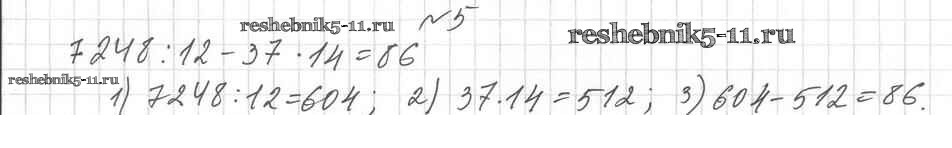 reshebnik5-11.ru №5 reshebnik5-11.ru
7248:12-37·14=86
reshebnik5-11.ru
1) 7248:12=604; 2) 37·14=512; 3) 604-512=86.